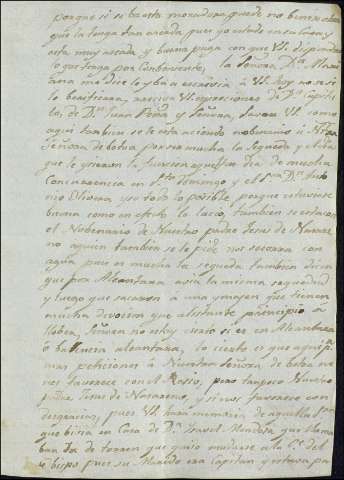 porque si se ba esta moradura puede no benir
que la tenga tan arada pues yo estado en su casa y
esta muy arada y buena paga con que Vd disponga
lo que tenga por conbeniente, la Señora Dª
ana me dice lo yba a escrivir a Vd hoy no se si
lo berificara, reciva Vd espresiones de Dª
de Dn Juan Peña y Señora, savra Vd como
aqui tambien se le esta aciendo nobenario a Ntra
Señora de botoa por ser mucha la sequeda y el dia
que le ycieron la funcion aquel fue dia de mucha
concurrencia en Sto domingo y el Sor Dn Anto
nio Olivera yso todo lo posible, porque estuviese
buena como en efeto lo lució, tambien se esta con
el Nobenario de Nuestro padre Jesus de Nazare
no aquien tambien se le pide nos socorra con
agua pues es mucha la sequeda tambien dicen
que por Alcantara asia la misma sequedad
y luego que sacaron a una ymajen que tienen
mucha devocion que al ystante principio a
llober, Señora no se hoy cierto si es en Alcantara
o balencia alcantara, lo cierto es que aqui
mas peticiones a Nuestra Señora de botoa no
nos faborece con el Rosio, pero tampoco Nuestro
padre Jesus de Nazareno, y si nos faborece con
desgracias, pues Vd hara memoria de aquella Sra
que bibia en Casa de Dª Ysavel Mendosa que llama
ban Dª de torres que quiso mudarse a la Cª del
obispo pues su Marido era Capitan y estava pa